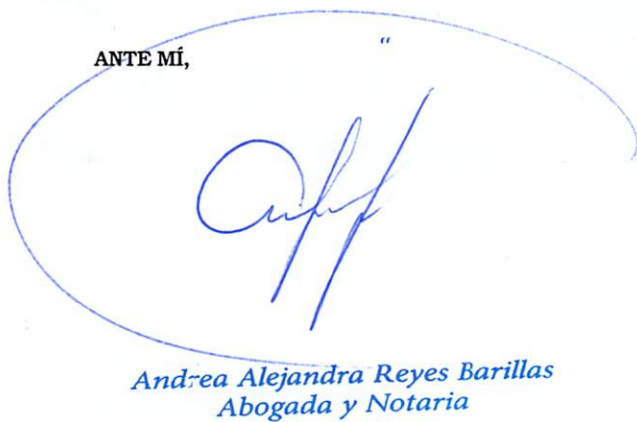 ANTE MÍ,
Andrea Alejandra Reyes Barillas
Abogada y Notaria